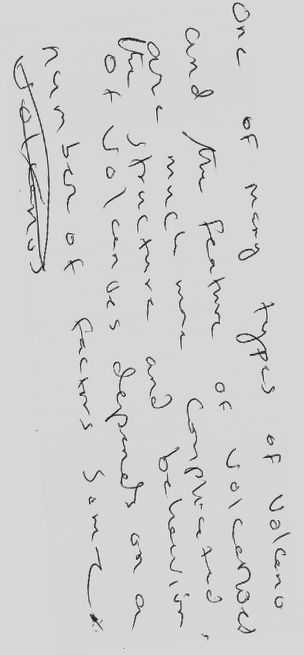 one of many types of volcano
and the feature of volcanoes
are much more complicated,
the structure and behavior,
of volcanoes depends on a
number of factors some